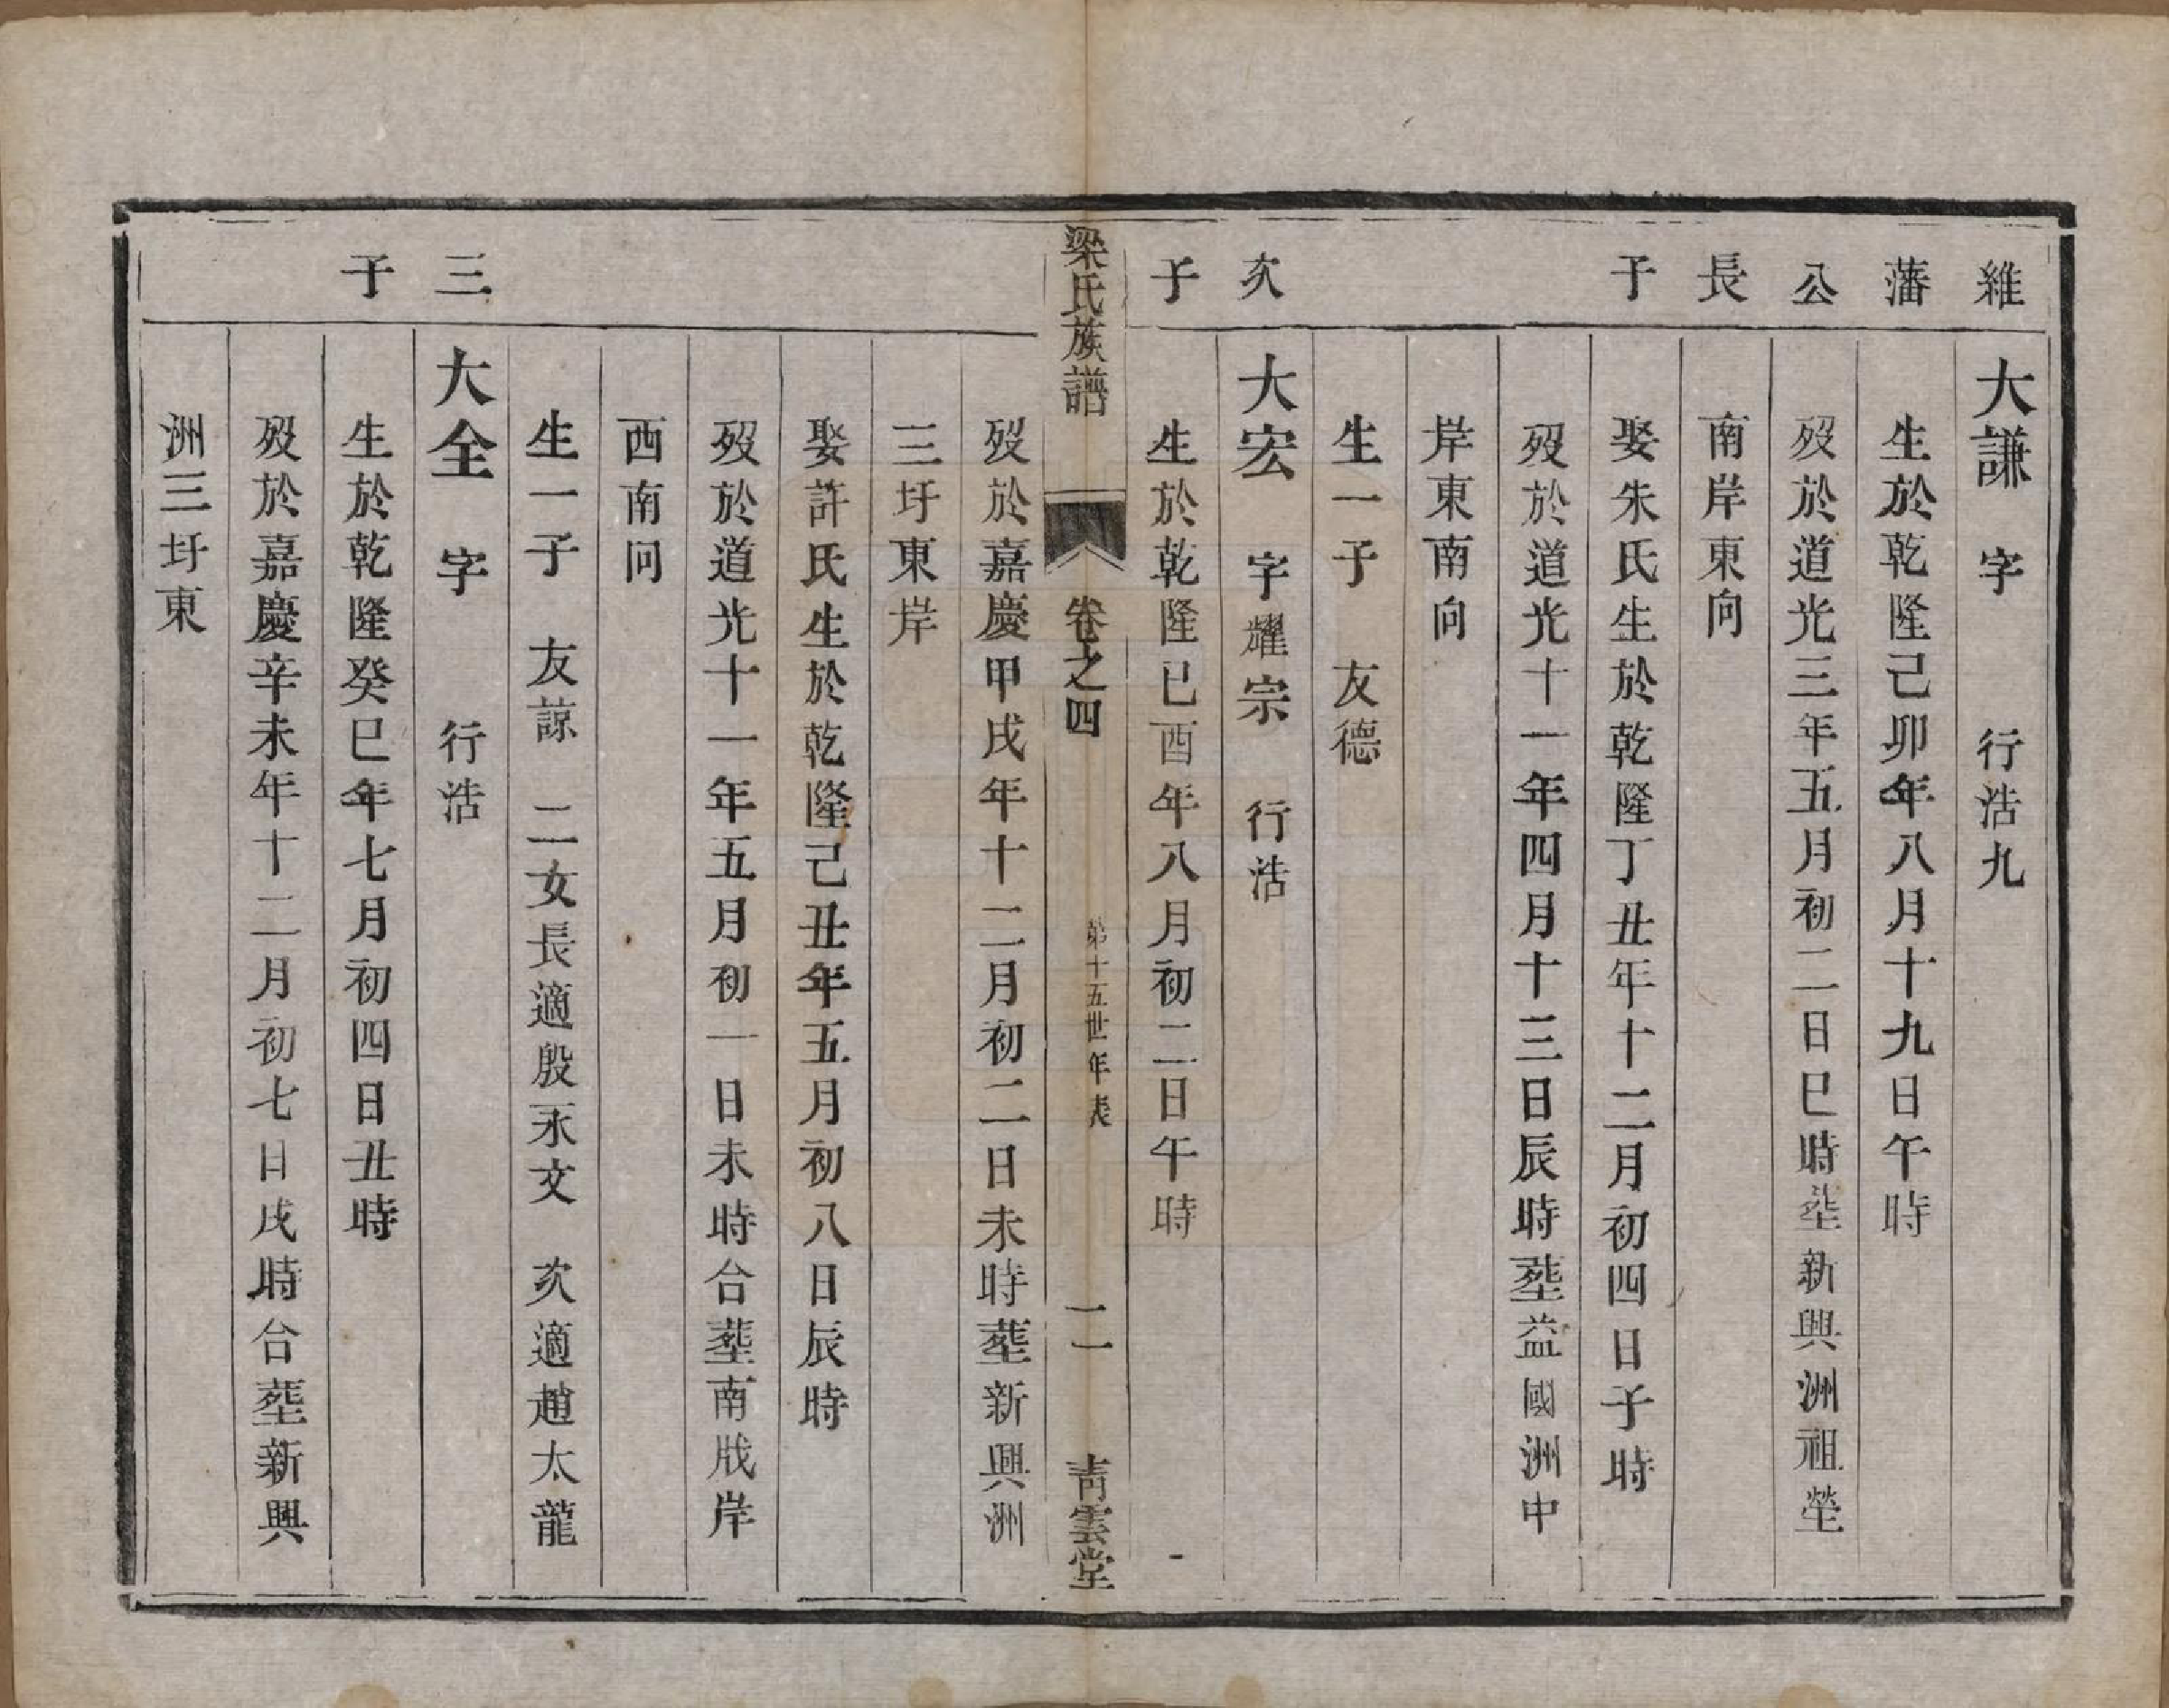 維藩公長子
大謙　字　　行浩九
生於乾隆己卯年八月十九日午時
歿於道光三年五月初二日巳時塟新興洲祖塋
南岸東向
娶朱氏生於乾隆丁丑年十二月初四日子時
歿於道光十一年四月十三日辰時塟益國洲中
岸東南向
生一子　友德
次子
大宏　字耀宗　行浩
生於乾隆己酉年八月初二日午時
梁氏族譜　卷之四　第十五世年表　二　青雲堂
歿於嘉慶甲戌年十二月初二日未時塟新興洲
三圩東岸
娶許氏生於乾隆己丑年五月初八日辰時
歿於道光十一年五月初一日未時合塟南戙岸
西南向
生一子　友諒　二女長適殷永文　次適趙太龍
三子
大全　字　　行浩
生於乾隆癸巳年七月初四日丑時
歿於嘉慶辛未年十二月初七日戌時合塟新興
洲三圩東